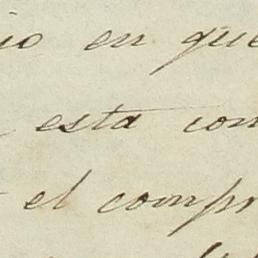 en que
esta con
el compr